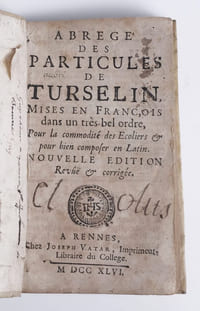 ABREGÉ
DES
PARTICULES
DE
TURSELIN.
MISES EN FRANÇOIS
dans un très-bel ordre,
Pour la commodité des Ecoliers &
pour bien composer en Latin.
NOUVELLE EDITION
Revûë & corrigée.
IHS
A RENNES,
Chez JOSEPH VATAR, Imprimeur,
Libraire du College.
M DCC XLVI.